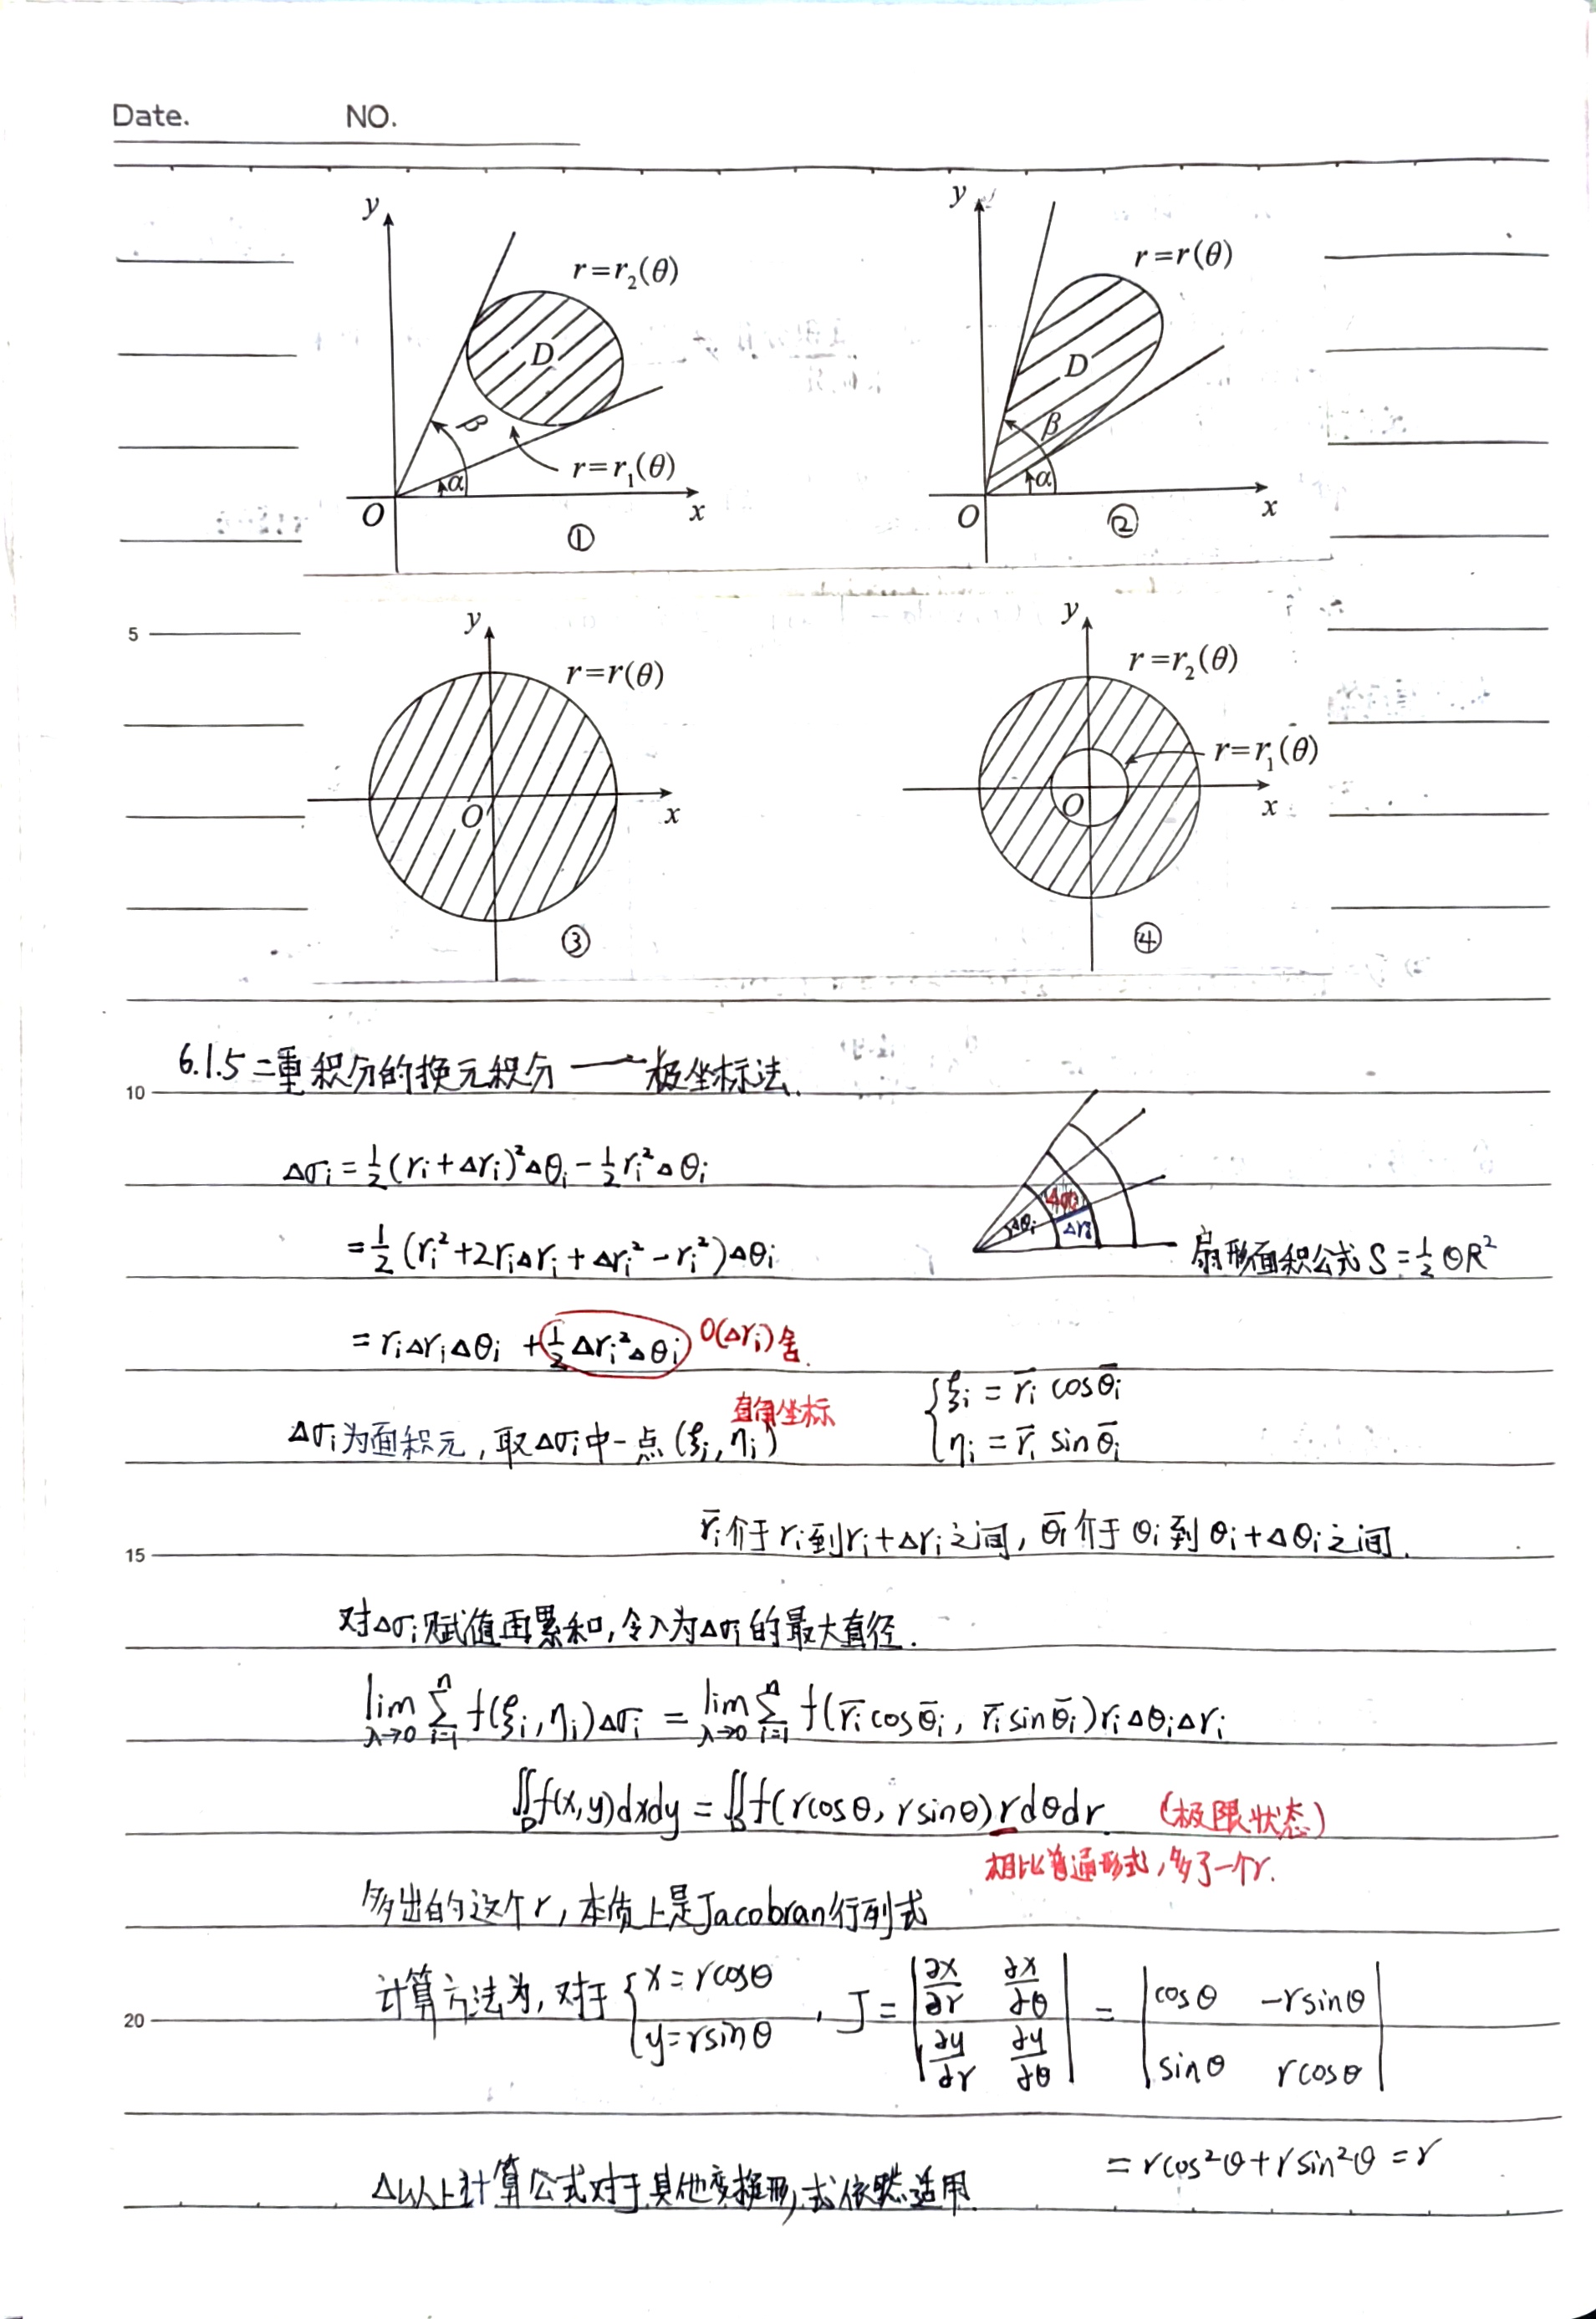 Date. NO.
y
r=r₂(θ)
D
β
α
r=r₁(θ)
O
x
①
y
r=r(θ)
D
β
α
O
x
②
5
y
r=r(θ)
O
x
③
y
r=r₂(θ)
r=r₁(θ)
O
x
④
6.1.5 二重积分的换元积分 —— 极坐标法.
10
Δσᵢ = ½(rᵢ+Δrᵢ)²Δθᵢ - ½rᵢ²Δθᵢ
= ½(rᵢ²+2rᵢΔrᵢ+Δrᵢ²-rᵢ²)Δθᵢ
Δθᵢ Δσᵢ Δrᵢ
扇形面积公式 S=½θR²
= rᵢΔrᵢΔθᵢ + ½Δrᵢ²Δθᵢ O(Δrᵢ)舍.
Δσᵢ为面积元, 取Δσᵢ中一点(ξᵢ, ηᵢ) 直角坐标
{ξᵢ = r̄ᵢ cosθ̄ᵢ
ηᵢ = r̄ᵢ sinθ̄ᵢ
r̄ᵢ介于rᵢ到rᵢ+Δrᵢ之间, θ̄ᵢ介于θᵢ到θᵢ+Δθᵢ之间.
15
对Δσᵢ赋值再累和, 令λ为Δσᵢ的最大直径.
lim λ→0 Σ i=1 n f(ξᵢ, ηᵢ)Δσᵢ = lim λ→0 Σ i=1 n f(r̄ᵢcosθ̄ᵢ, r̄ᵢsinθ̄ᵢ)rᵢΔθᵢΔrᵢ
∬D f(x,y)dxdy = ∬D f(rcosθ, rsinθ)rdθdr. (极限状态)
相比普通形式, 多了一个r.
多出的这个r, 本质上是Jacobran行列式
计算方法为, 对于{x=rcosθ y=rsinθ, J = |∂x/∂r ∂x/∂θ ∂y/∂r ∂y/∂θ| = |cosθ -rsinθ sinθ rcosθ|
20
= rcos²θ+rsin²θ = r
Δ以上计算公式对于其他变换形式依然适用.